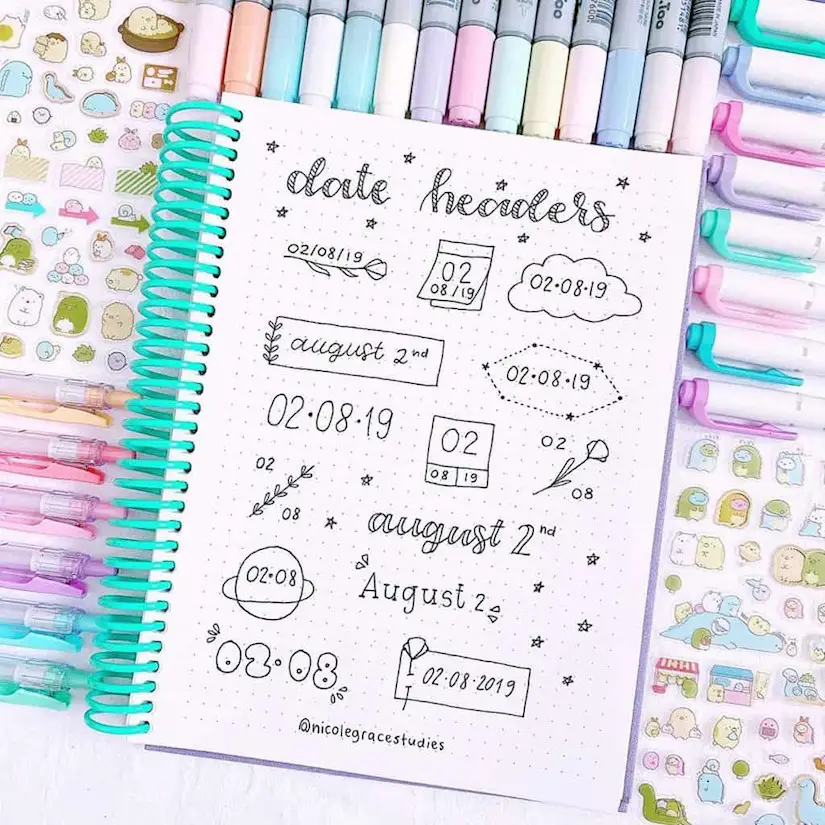 date headers
02/08/19
02
08/19
02·08·19
august 2nd
02·08·19
02·08·19
02
08 19
02
08
02
08
august 2nd
02·08
August 2
02·08
02·08·2019
@nicolegracestudies